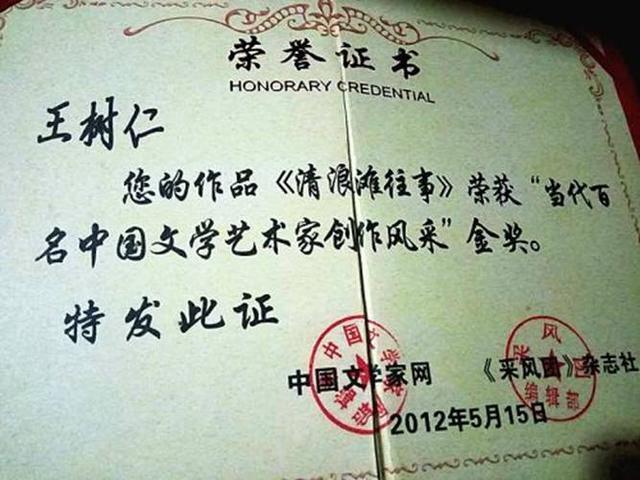 荣誉证书
HONORARY CREDENTIAL
王树仁
您的作品《清浪滩往事》荣获“当代百
名中国文学艺术家创作风采”金奖。
特发此证
中国文学家网 《采风团》杂志社
2012年5月15日
编辑部